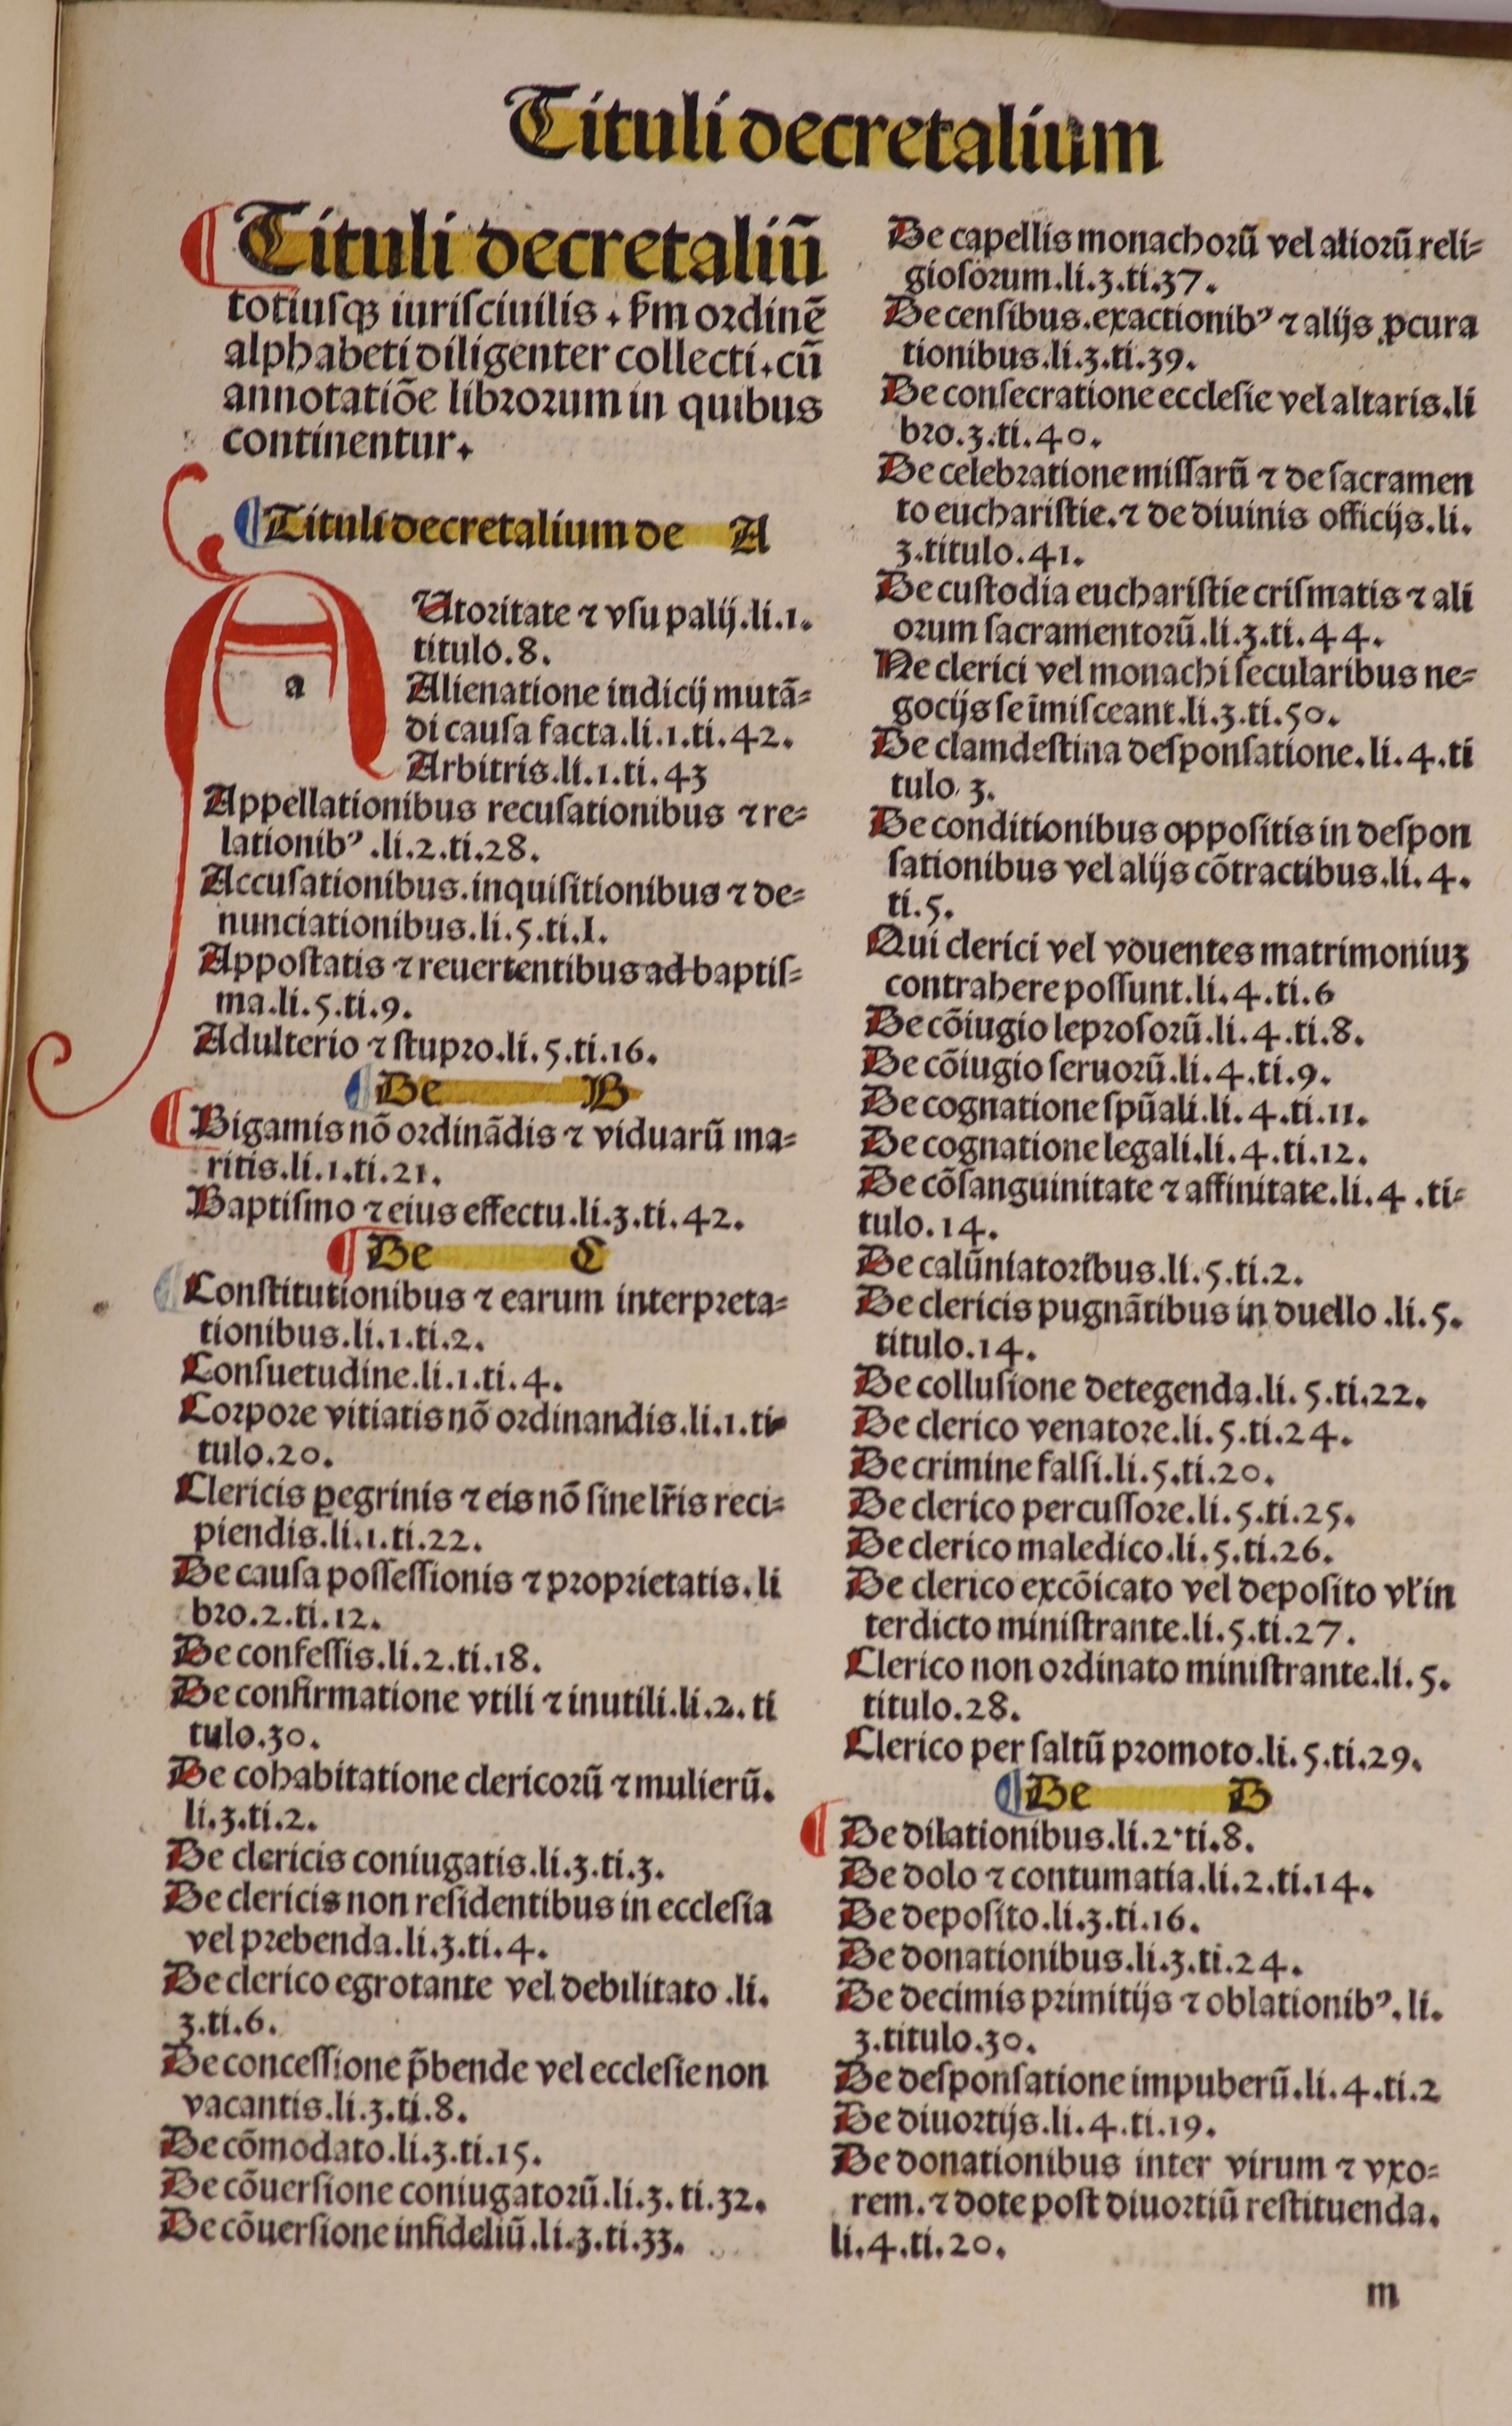 Tituli decretalium
¶Tituli decretaliū
totiusqꝫ iuriſciuilis . ẜm ordinē
alphabeti diligenter collecti.cū
annotatiōe librorum in quibus
continentur.
¶Tituli decretalium de A
a
Utoritate ⁊ vſu palij.li.1.
titulo.8.
Alienatione iudicij mutā⸗
di cauſa facta.li.1.ti.42.
Arbitris.li.1.ti.43
Appellationibus recuſationibus ⁊ re⸗
lationibꝰ .li.2.ti.28.
Accuſationibus.inquiſitionibus ⁊ de⸗
nunciationibus.li.5.ti.I.
Appoſtatis ⁊ reuertentibus ad baptiſ⸗
ma.li.5.ti.9.
Adulterio ⁊ ſtupro.li.5.ti.16.
¶De B
¶Bigamis nō ordinādis ⁊ viduarū ma⸗
ritis.li.1.ti.21.
Baptiſmo ⁊ eius effectu.li.3.ti.42.
¶De C
¶Conſtitutionibus ⁊ earum interpreta⸗
tionibus.li.1.ti.2.
Conſuetudine.li.1.ti.4.
Corpore vitiatis nō ordinandis.li.1.ti⸗
tulo.20.
Clericis ꝑegrinis ⁊ eis nō ſine lr̄is reci⸗
piendis.li.1.ti.22.
De cauſa poſſeſſionis ⁊ proprietatis.li
bro.2.ti.12.
De confeſſis.li.2.ti.18.
De confirmatione vtili ⁊ inutili.li.2.ti
tulo.30.
De cohabitatione clericorū ⁊ mulierū.
li.3.ti.2.
De clericis coniugatis.li.3.ti.3.
De clericis non reſidentibus in eccleſia
vel prebenda.li.3.ti.4.
De clerico egrotante vel debilitato .li.
3.ti.6.
De conceſſione p̄bende vel eccleſie non
vacantis.li.3.ti.8.
De cōmodato.li.3.ti.15.
De cōuerſione coniugatorū.li.3.ti.32.
De cōuerſione infideliū.li.3.ti.33.
De capellis monachorū vel aliorū reli⸗
gioſorum.li.3.ti.37.
De cenſibus.exactionibꝰ ⁊ alijs ꝓcura
tionibus.li.3.ti.39.
De conſecratione eccleſie vel altaris.li
bro.3.ti.40.
De celebratione miſſarū ⁊ de ſacramen
to euchariſtie.⁊ de diuinis officijs.li.
3.titulo.41.
De cuſtodia euchariſtie criſmatis ⁊ ali
orum ſacramentorū.li.3.ti.44.
Ne clerici vel monachi ſecularibus ne⸗
gocijs ſe īmiſceant.li.3.ti.50.
De clamdeſtina deſponſatione.li.4.ti
tulo.3.
De conditionibus oppoſitis in deſpon
ſationibus vel alijs cōtractibus.li.4.
ti.5.
Qui clerici vel vouentes matrimoniuꝫ
contrahere poſſunt.li.4.ti.6
De cōiugio leproſorū.li.4.ti.8.
De cōiugio ſeruorū.li.4.ti.9.
De cognatione ſpūali.li.4.ti.11.
De cognatione legali.li.4.ti.12.
De cōſanguinitate ⁊ affinitate.li.4 .ti⸗
tulo.14.
De calūniatoribus.li.5.ti.2.
De clericis pugnātibus in duello .li.5.
titulo.14.
De colluſione detegenda.li.5.ti.22.
De clerico venatore.li.5.ti.24.
De crimine falſi.li.5.ti.20.
De clerico percuſſore.li.5.ti.25.
De clerico maledico.li.5.ti.26.
De clerico excōicato vel depoſito vl̓ in
terdicto miniſtrante.li.5.ti.27.
Clerico non ordinato miniſtrante.li.5.
titulo.28.
Clerico per ſaltū promoto.li.5.ti.29.
¶De D
¶De dilationibus.li.2.ti.8.
De dolo ⁊ contumatia.li.2.ti.14.
De depoſito.li.3.ti.16.
De donationibus.li.3.ti.24.
De decimis primitijs ⁊ oblationibꝰ.li.
3.titulo.30.
De deſponſatione impuberū.li.4.ti.2
De diuortijs.li.4.ti.19.
De donationibus inter virum ⁊ vxo⸗
rem.⁊ dote poſt diuortiū reſtituenda.
li.4.ti.20.
m